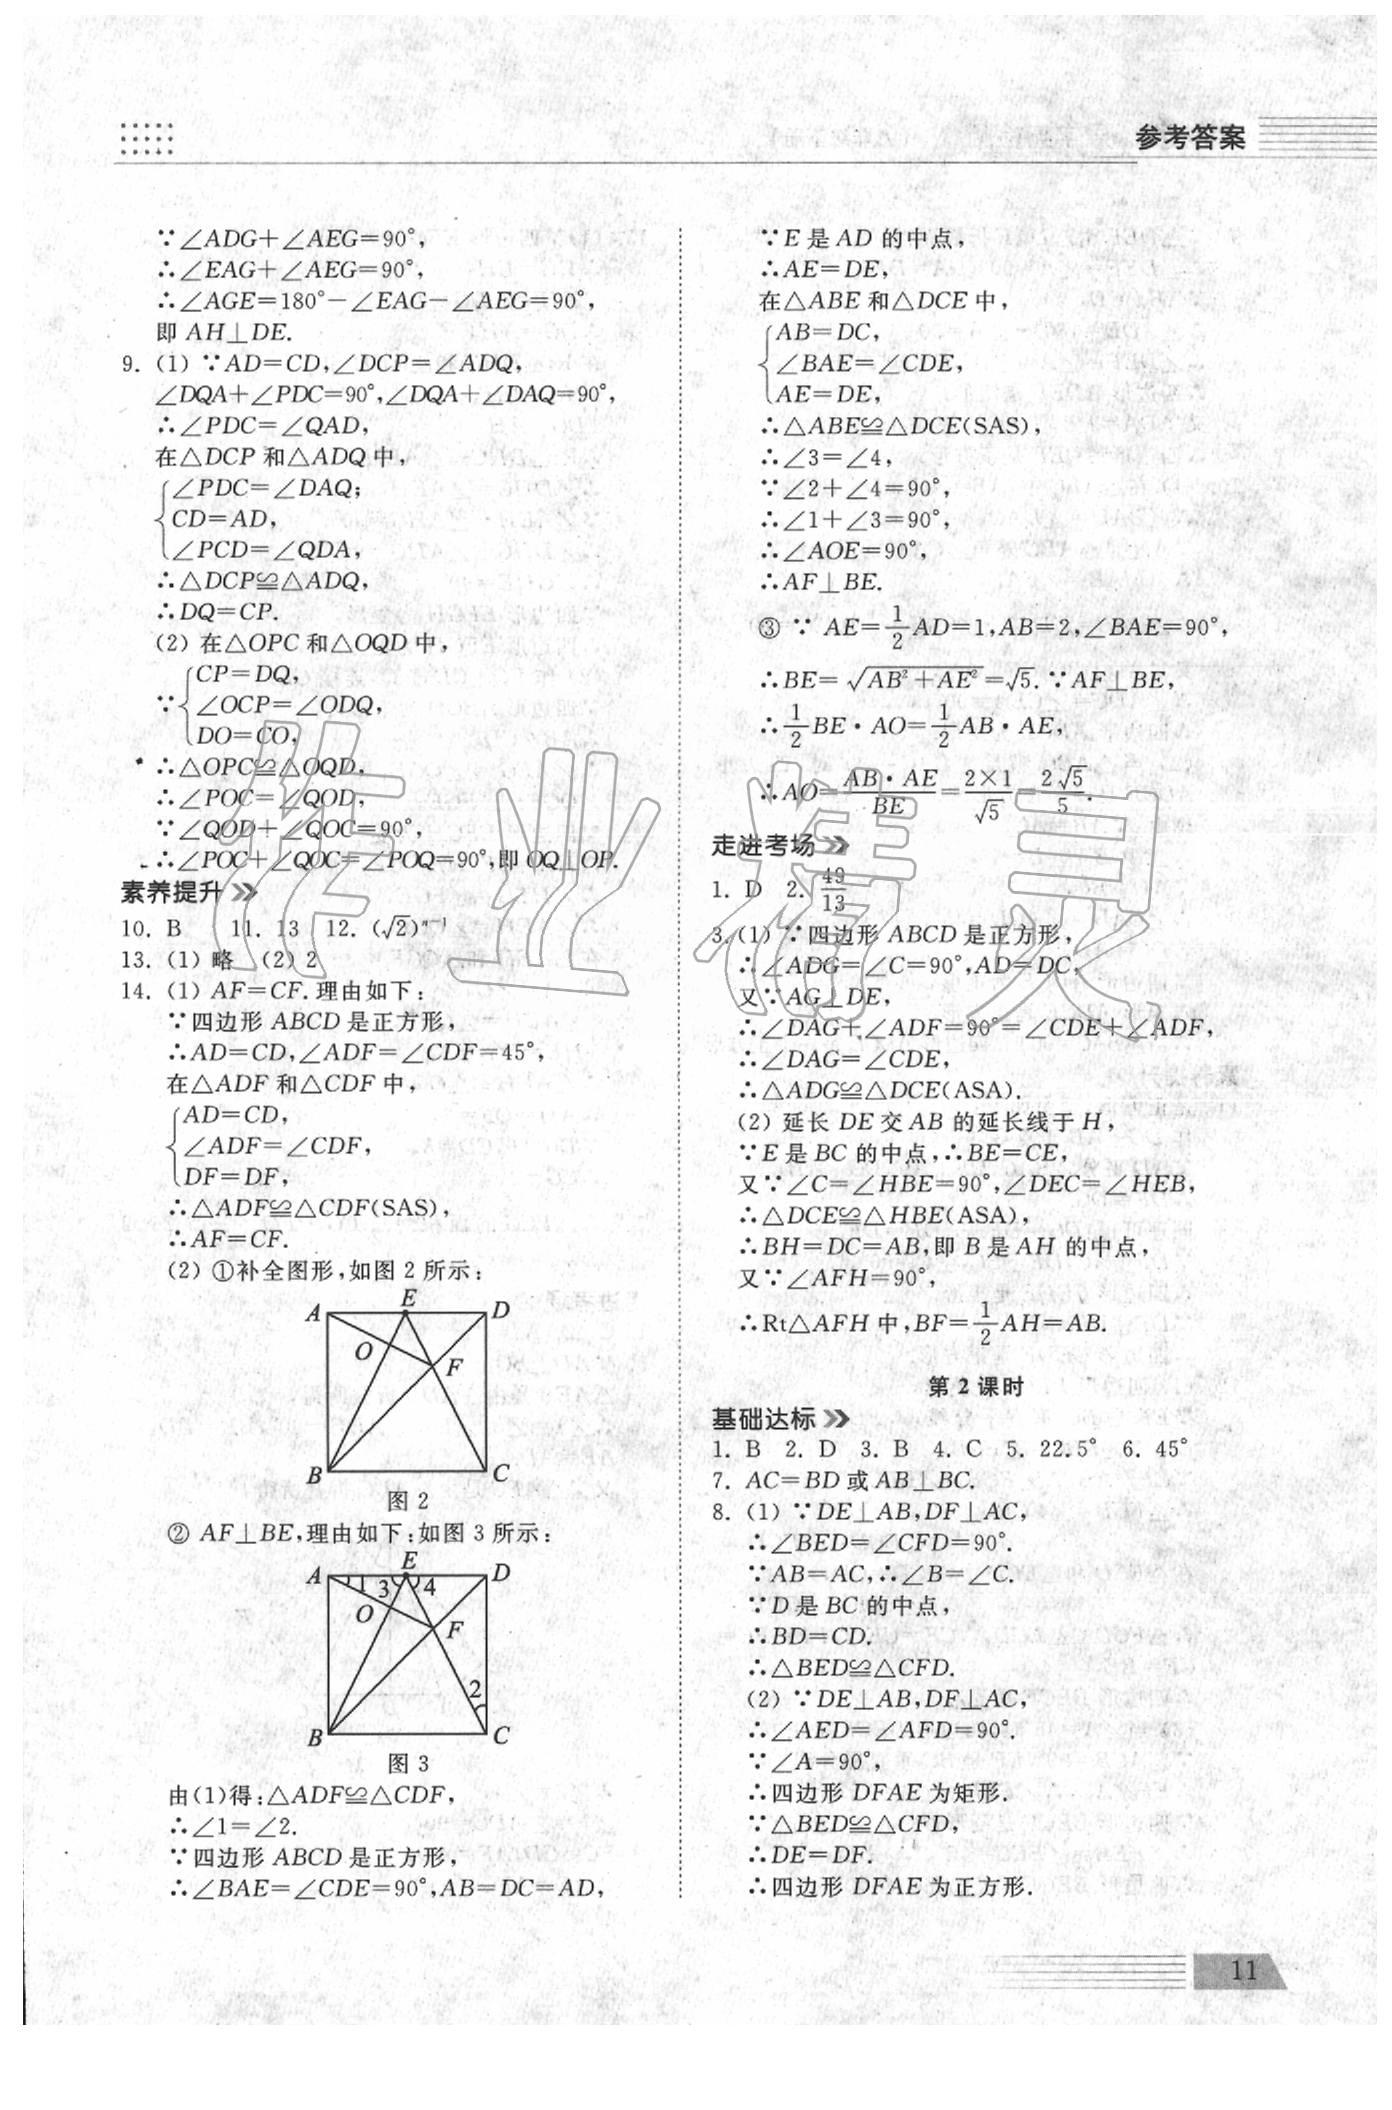 参考答案
∵∠ADG+∠AEG=90°,
∴∠EAG+∠AEG=90°,
∴∠AGE=180°-∠EAG-∠AEG=90°,
即 AH⊥DE.
9. (1) ∵AD=CD,∠DCP=∠ADQ,
∠DQA+∠PDC=90°,∠DQA+∠DAQ=90°,
∴∠PDC=∠QAD,
在△DCP 和△ADQ 中,
∠PDC=∠DAQ;
CD=AD,
∠PCD=∠QDA,
∴△DCP≌△ADQ,
∴DQ=CP.
(2) 在△OPC 和△OQD 中,
CP=DQ,
∵ ∠OCP=∠ODQ,
DO=CO,
∴△OPC≌△OQD,
∴∠POC=∠QOD,
∵∠QOD+∠QOC=90°,
∴∠POC+∠QOC=∠POQ=90°,即 OQ⊥OP.
素养提升
10. B 11. 13 12. (√2)ⁿ⁻¹
13. (1) 略 (2) 2
14. (1) AF=CF.理由如下:
∵四边形 ABCD 是正方形,
∴AD=CD,∠ADF=∠CDF=45°,
在△ADF 和△CDF 中,
AD=CD,
∠ADF=∠CDF,
DF=DF,
∴△ADF≌△CDF(SAS),
∴AF=CF.
(2) ①补全图形,如图 2 所示:
A E D
O F
B C
图 2
② AF⊥BE,理由如下:如图 3 所示:
A E D
1 3 4
O F
2
B C
图 3
由(1)得:△ADF≌△CDF,
∴∠1=∠2.
∵四边形 ABCD 是正方形,
∴∠BAE=∠CDE=90°,AB=DC=AD,
∵E 是 AD 的中点,
∴AE=DE,
在△ABE 和△DCE 中,
AB=DC,
∠BAE=∠CDE,
AE=DE,
∴△ABE≌△DCE(SAS),
∴∠3=∠4,
∵∠2+∠4=90°,
∴∠1+∠3=90°,
∴∠AOE=90°,
∴AF⊥BE.
③ ∵ AE=1/2AD=1,AB=2,∠BAE=90°,
∴BE=√(AB²+AE²)=√5.∵AF⊥BE,
∴1/2BE·AO=1/2AB·AE,
∴AO=AB·AE/BE=2×1/√5=2√5/5.
走进考场
1. D 2. 49/13
3.(1) ∵四边形 ABCD 是正方形,
∴∠ADG=∠C=90°,AD=DC,
又∵AG⊥DE,
∴∠DAG+∠ADF=90°=∠CDE+∠ADF,
∴∠DAG=∠CDE,
∴△ADG≌△DCE(ASA).
(2) 延长 DE 交 AB 的延长线于 H,
∵E 是 BC 的中点,∴BE=CE,
又∵∠C=∠HBE=90°,∠DEC=∠HEB,
∴△DCE≌△HBE(ASA),
∴BH=DC=AB,即 B 是 AH 的中点,
又∵∠AFH=90°,
∴Rt△AFH 中,BF=1/2AH=AB.
第 2 课时
基础达标
1. B 2. D 3. B 4. C 5. 22.5° 6. 45°
7. AC=BD 或 AB⊥BC.
8. (1) ∵DE⊥AB,DF⊥AC,
∴∠BED=∠CFD=90°.
∵AB=AC,∴∠B=∠C.
∵D 是 BC 的中点,
∴BD=CD.
∴△BED≌△CFD.
(2) ∵DE⊥AB,DF⊥AC,
∴∠AED=∠AFD=90°.
∵∠A=90°,
∴四边形 DFAE 为矩形.
∵△BED≌△CFD,
∴DE=DF.
∴四边形 DFAE 为正方形.
11
作业精灵